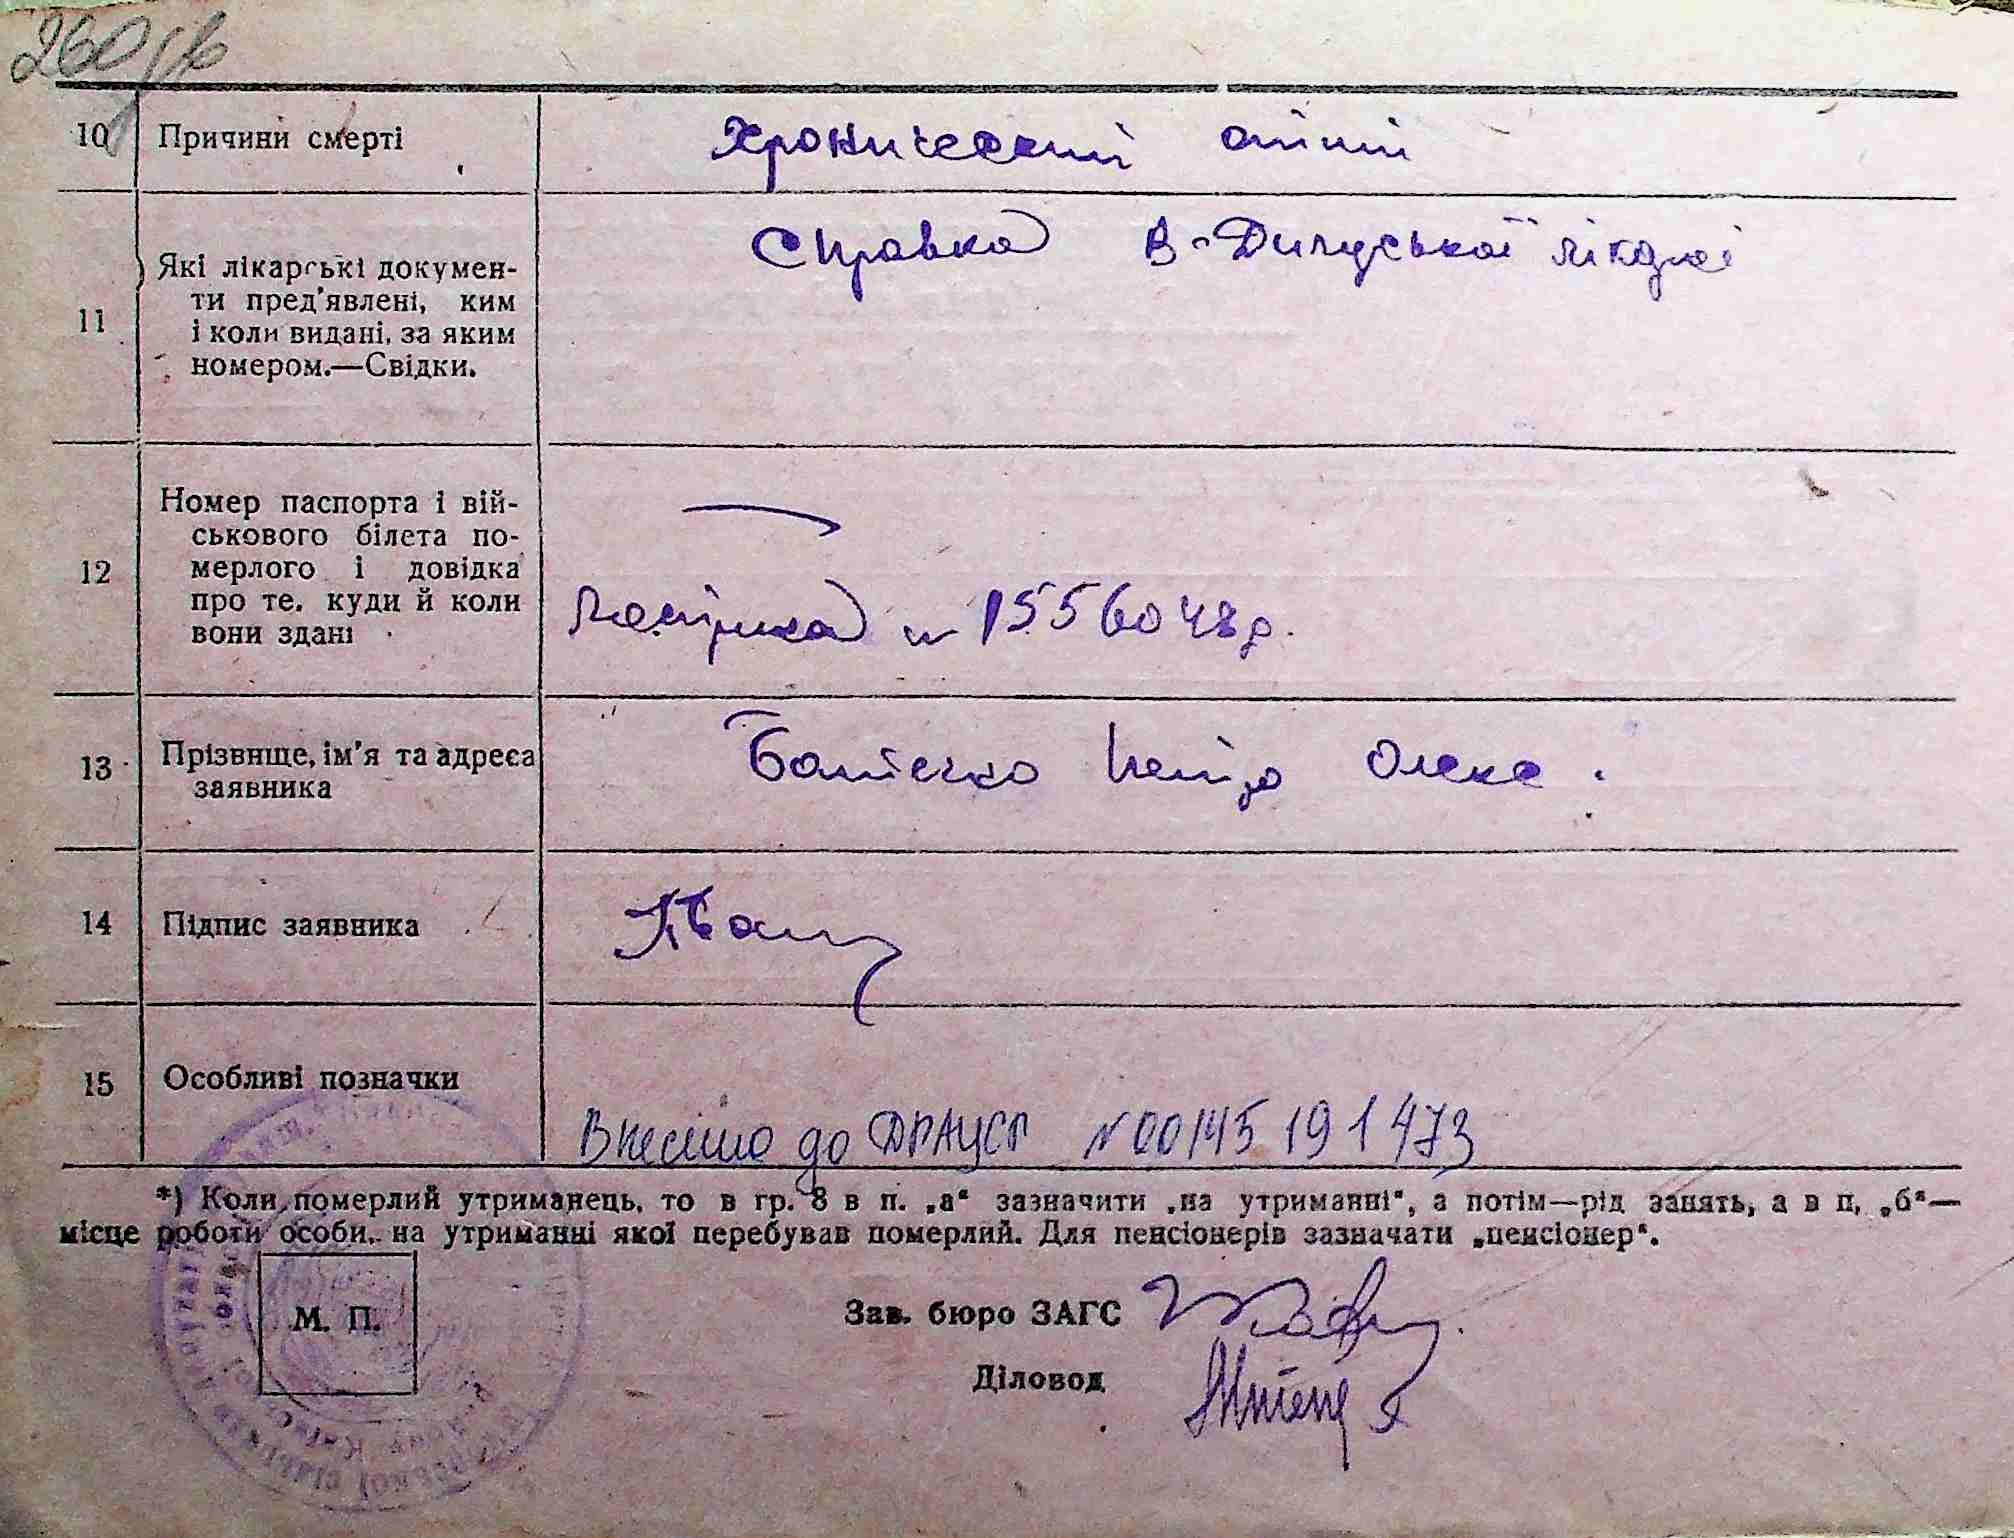 260 зв
10 Причини смерті Хронический
11 Які лікарські докумен-
ти пред'явлені, ким
і коли видані, за яким
номером.—Свідки.
Справка В-Димерської лікарні
12 Номер паспорта і вій-
ськового білета по-
мерлого і довідка
про те, куди й коли
вони здані
Метрика № 1556048р.
13 Прізвище, ім'я та адреса
заявника
Петро Олекс.
14 Підпис заявника
15 Особливі позначки
Внесено до ДРАЦСГ №00145191473
*) Коли померлий утриманець, то в гр. 8 в п. „а“ зазначити „на утриманні“, а потім—рід занять, а в п. „б“—
місце роботи особи, на утриманні якої перебував померлий. Для пенсіонерів зазначати „пенсіонер“.
М. П.
Зав. бюро ЗАГС
Діловод